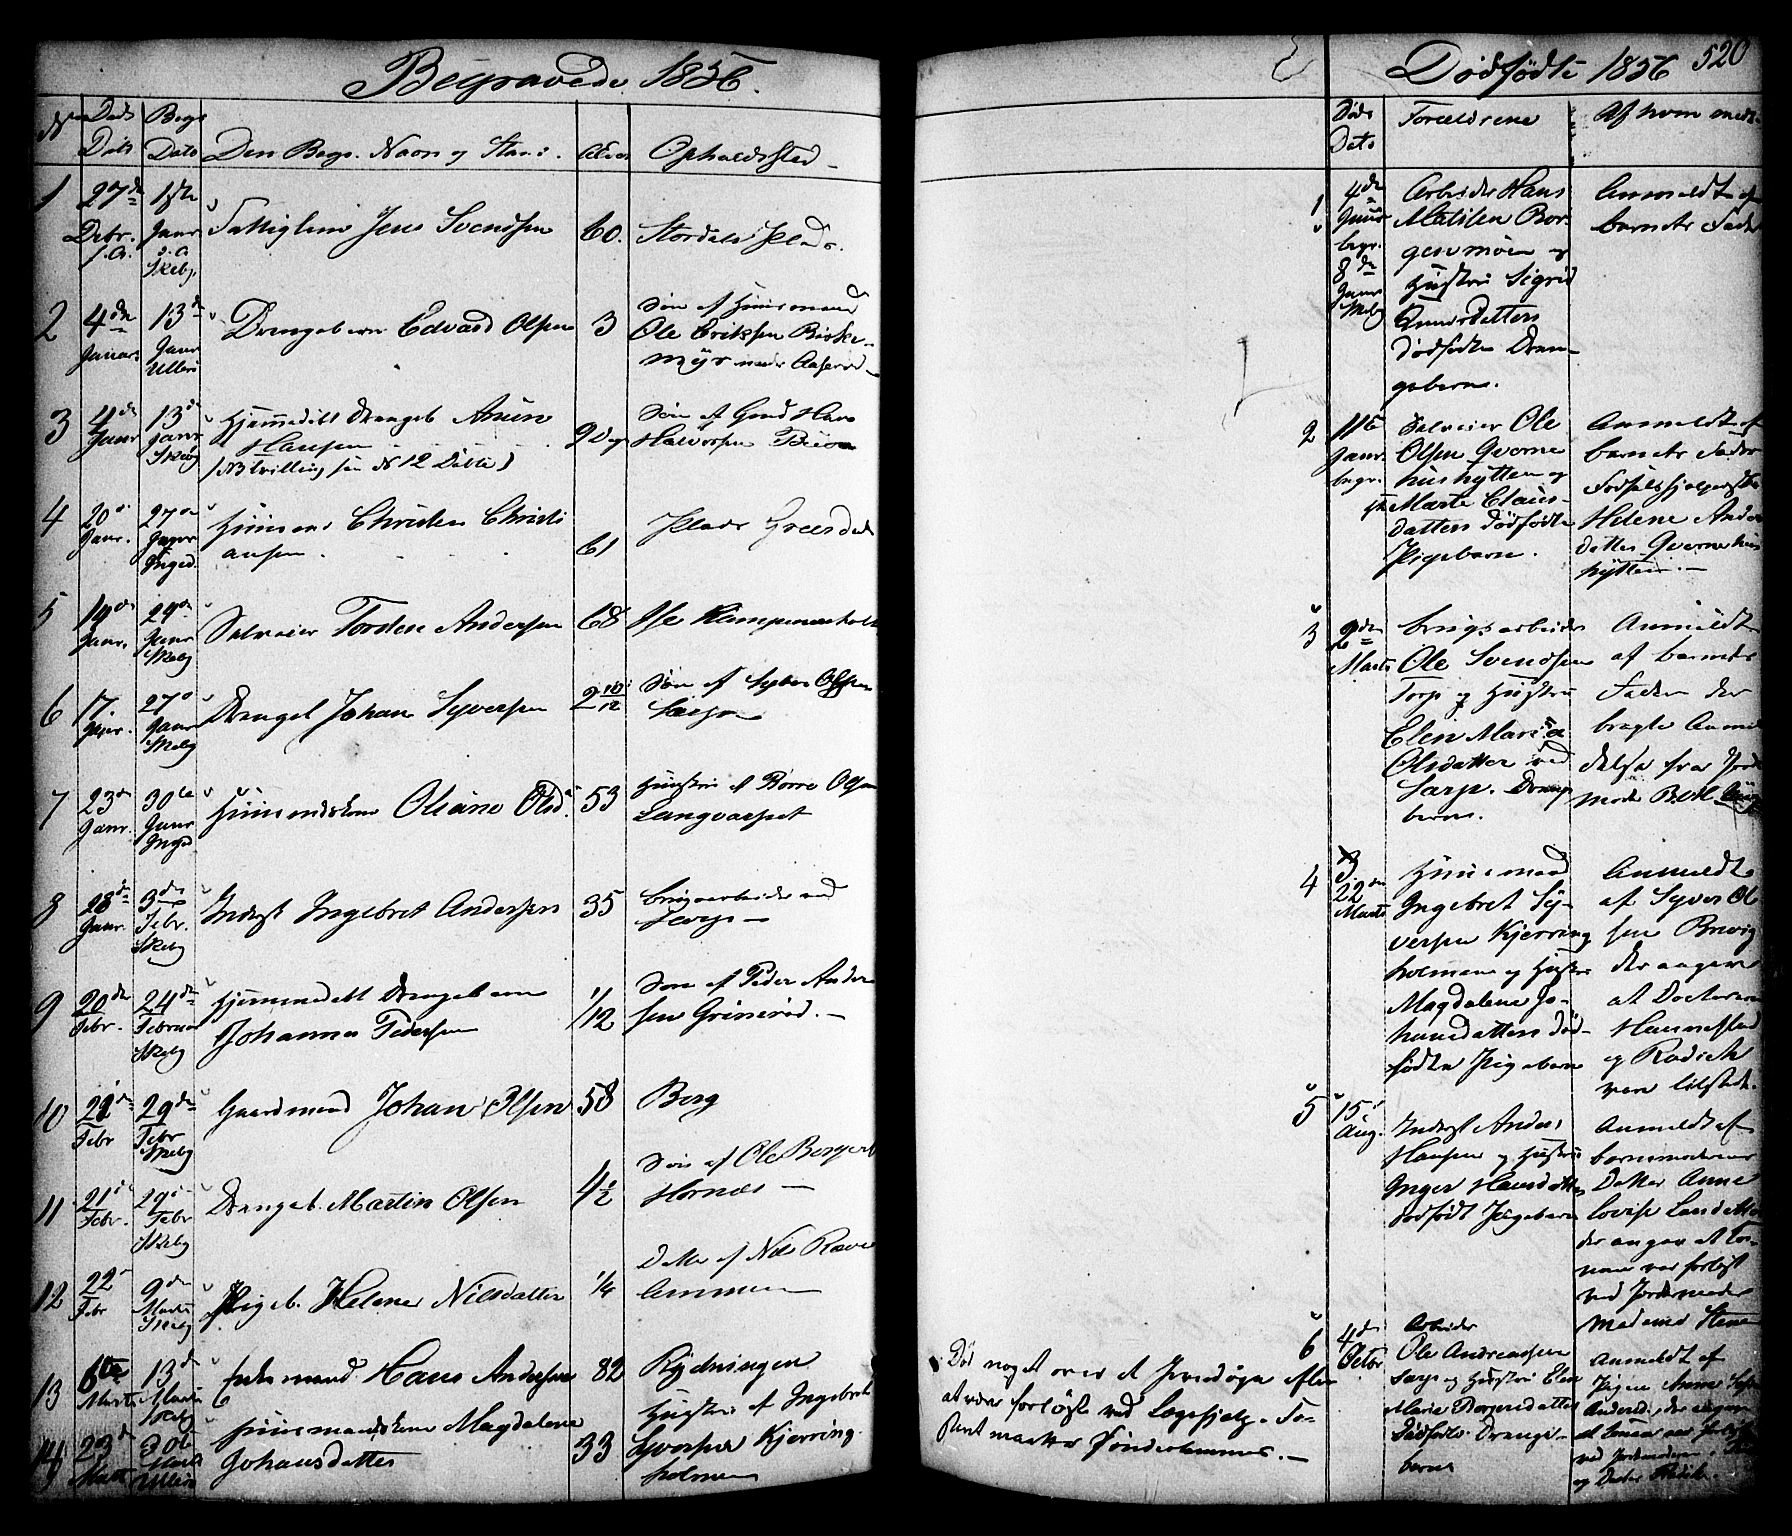 Begravede 1856.
No Døds Dato Begr Dato Den Begr. Navn og Stand. Alder Opholdssted
1 27de Decbr. f.A. 1ste Janr d.A Skeb. Fattiglem Jens Svendsen 60. Stordals Plads.
2 4de Januar 13de Janr Ullerø Drengebarn Edvard Olsen 3 Søn af Huusmand
Ole Eriksen Birke-
myr under Aaserød
3 4de Janr 13de Janr Skeb Hjemmedøbt Drengeb Anton
Hansen 9 Dage Søn af Gmd Hans
Halvorsen
(NB tvilling see N 12 Døbte)
4 20de Janr. 27de Janr Inged. Huusm Christen Christi
ansen. 61 Plads Greesdal
5 19de Janr. 29de Janr Skeb Selveier Torsten Andersen 68 Ise
6 17. Janr. 27de Janr Skeb Drengeb Johan Syversen 2 10/12 Søn af Syver Olsen
Sarpen
7 23de Janr. 30te Janr Inged Huusmandskone Oliane Olsd. 53 Hustru af Borre Olsen
Langvarpet
8 28de Janr. 3de Febr. Skeb Inderst Ingebret Andersen 35 Brugsarbeider ved
Sarp
9 20de Febr. 24de Februar Skeb Hjemmedøbt Drengebarn
Johannes Pedersen 1/12 Søn af Peder Ander
sen Grinerød.
10 21de Febr 29de Febr Skeb Gaardmand Johan Olsen 58 Borg
11 21de Febr. 29de Febr Skeb Drengeb. Martin Olsen 4 1/2 Søn af Ole Borgers
Hornæs
12 22de Febr 9de Marts Skeb Pigeb. Helene Nilsdatter 1/4 Datter af Nils
13 6te Marts 13de Marts Skeb Hans Andersen 82 Rydningen
14 23de Marts 30te Marts Ullerø Huusmandskone Magdalene
Johansdatter 33 Hustru af Ingebret
Syversen Kjerring-
holmen
Død noget over et Iversdøgn efter
at være forløst ved Lægehjelp. Fo-
steret maatte sønderlemmes.
Dødfødte 1856 520
Døds Dato Forældrene Af hvem meldt
1 4de Januar begr. 8de Janr Skeb
Arbeider Hans
Mathisen Bor-
genmoen og
Hustru Sigrid
Anersdatters
dødfødte Dren-
gebarn.
Anmeldt af
barnets Fader
2 16 Janr. begr.
Selveier Ole
Olsen Qverne
hushytten og
Marte Claus-
datters dødfødte
Pigebarn.
Anmeldt af
barnets Fader
Fødselshjelperske
Helene Anders
datter Qvernehus
hytten.
3 2den Marts
Brugsarbeider
Ole Svendsen
Torp og Hustru
Elen Maria
Olsdatter ved
Sarp. Drenge
barn.
Anmeldt
af barnets
Fader der
bragte Anmel
delse fra Jorde
moder
4 22de Marts
Huusmand
Ingebret Sy-
versen Kjerring
holmen og Hustru
Magdalene Jo-
hansdatters død-
fødte Pigebarn
Anmeldt
af Syver Ol
sen Brevig
der angav
at Doctorerne
Hannestad
og Radich
vare tilstede.
5 15de Aug.
Inderst Anders
Hansen og Hustru
Inger Hansdatters
dødfødt Pigebarn
Anmeldt af
barnemoderens
Datter Anne
Lovise
der angav at Ko-
nen var forløst
ved Jordemoder
Madame Steen
6 4de Octbr
Arbeider
Ole Andreassen
Sarp og Hustru Elen
Marie Borgersdatters
Dødfødte Drenge-
barn
Anmeldt af
Pigen Anne
Andersd. der angav
at Konen var forløst
ved Jordemoder
og Doctor Radich.